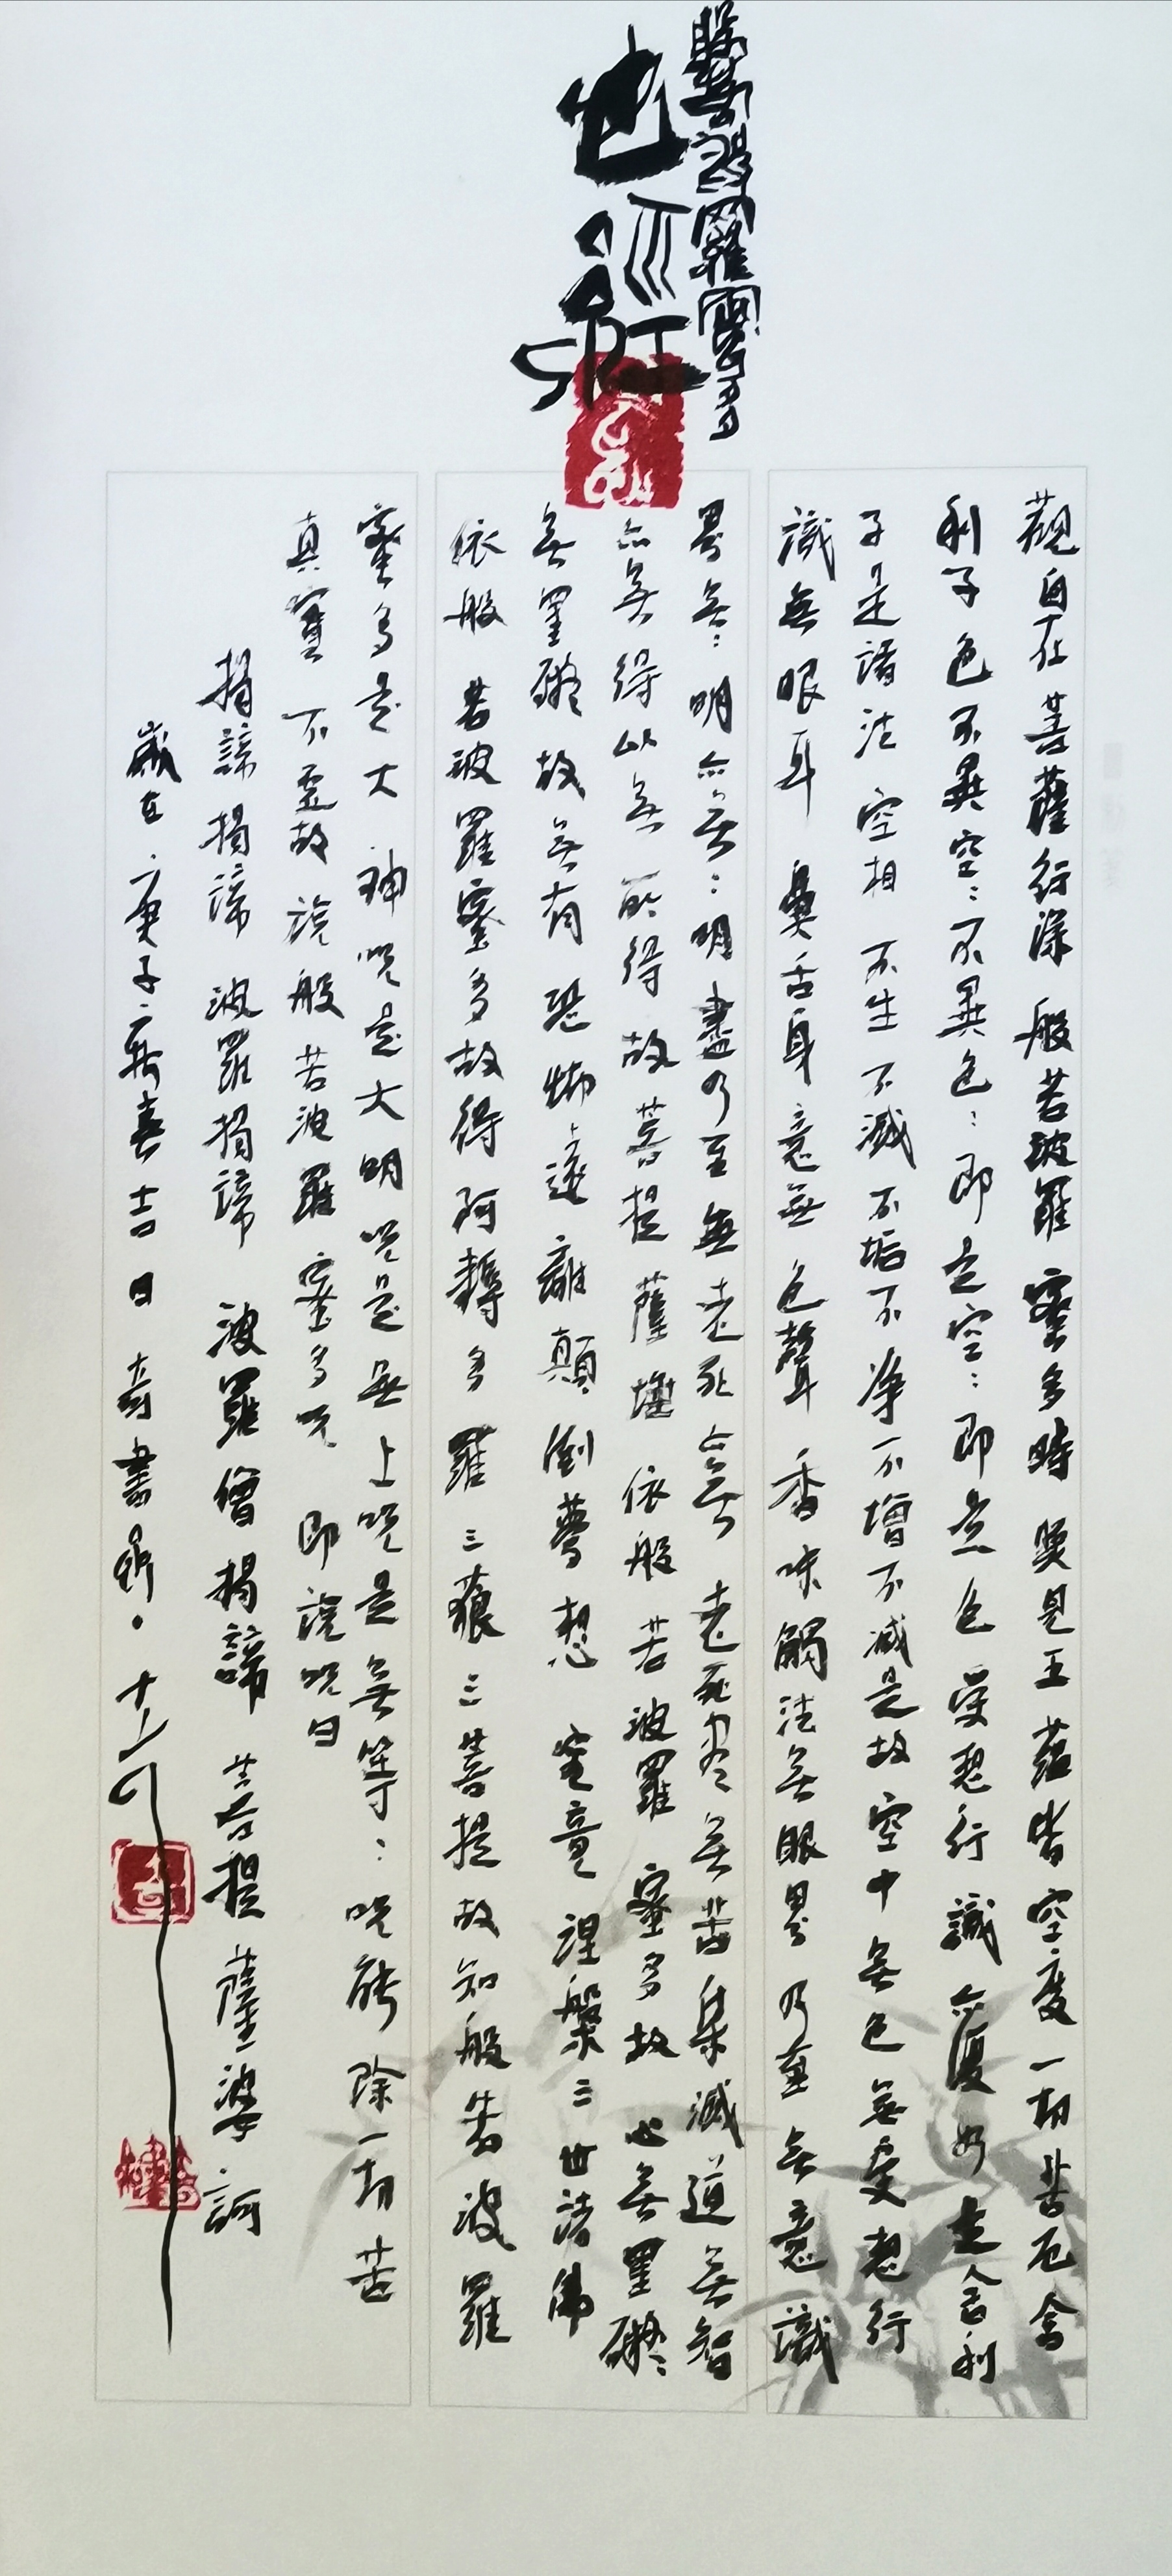 般若波羅蜜多
心經
觀自在菩薩行深般若波羅蜜多時照見五蘊皆空度一切苦厄舍
利子色不異空：不異色：即是空：即是色受想行識亦復如是舍利
子是諸法空相不生不滅不垢不淨不增不減是故空中無色無受想行
識無眼耳鼻舌身意無色聲香味觸法無眼界乃至無意識
界無：明亦無：明盡乃至無老死亦無老死盡無苦集滅道無智
亦無得以無所得故菩提薩埵依般若波羅蜜多故心無罣礙：
無罣礙故無有恐怖遠離顛倒夢想究竟涅槃三世諸佛
依般若波羅蜜多故得阿耨多羅三藐三菩提故知般若波羅
蜜多是大神咒是大明咒是無上咒是無等：咒能除一切苦
真實不虛故說般若波羅蜜多咒即說咒曰
揭諦揭諦波羅揭諦波羅僧揭諦菩提薩婆訶
歲在庚子吉日奇書